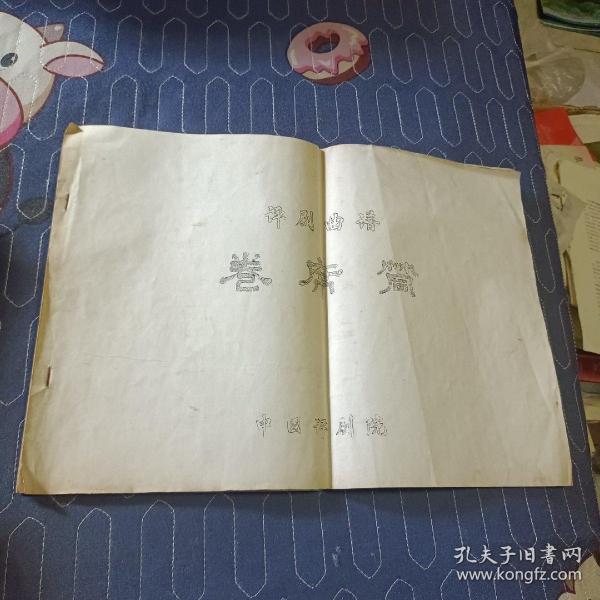 评剧曲谱
卷席筒
中国评剧院
孔夫子旧书网
www.kongfz.com